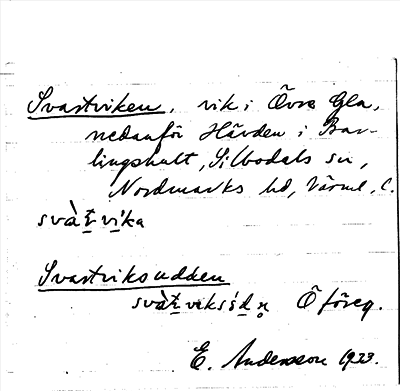 Svartviken, vik i Övre Gla,
nedanför Hävden i Bar-
lingshult, Silbodals sn,
Nordmarks hd, Värml. l.
svàṯviḱa
Svartviksudden
svàṯviks Ö föreg.
E. Andersson 1933.